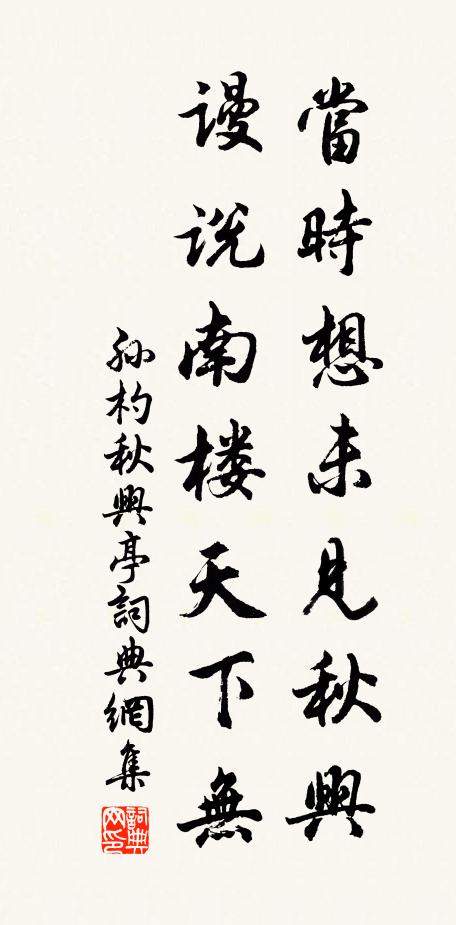 當時想未見秋興
谩说南楼天下無
孙杓秋興亭詞典網集
詞典网印